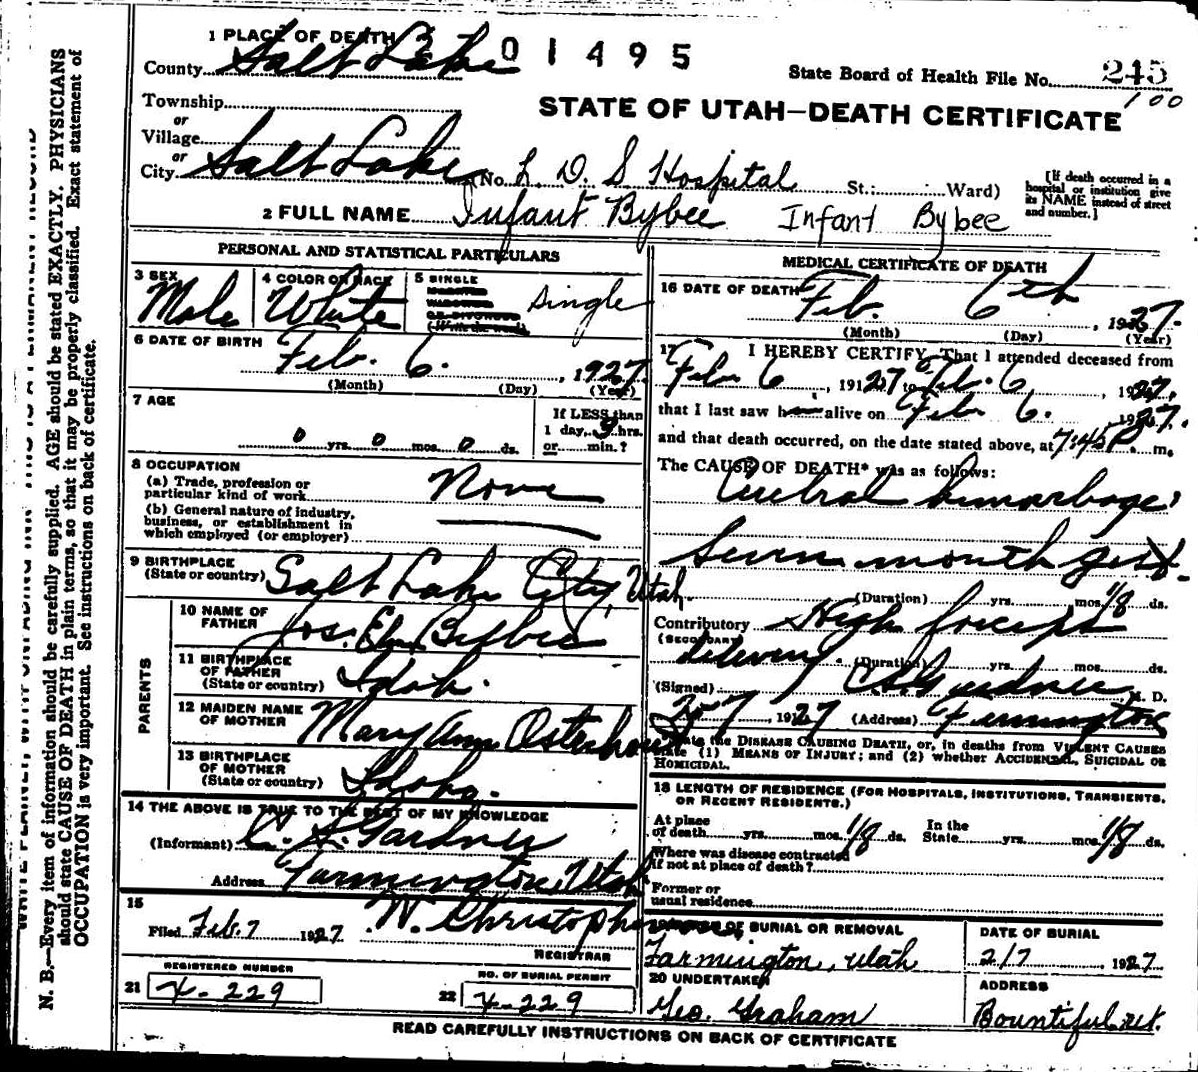 1 PLACE OF DEATH
01495
County Salt Lake
State Board of Health File No. 245
100
STATE OF UTAH—DEATH CERTIFICATE
Township
or
Village
or
City Salt Lake (No. L. D. S Hospital St.: Ward)
[If death occurred in a hospital or institution give its NAME instead of street and number.]
2 FULL NAME Infant Bybee Infant Bybee
PERSONAL AND STATISTICAL PARTICULARS
3 SEX Male
4 COLOR OR RACE White
5 SINGLE single
6 DATE OF BIRTH Feb. 6. , 1927.
(Month) (Day) (Year)
7 AGE
0 yrs. 0 mos. 0 ds.
If LESS than
1 day, 9 hrs.
or min.?
8 OCCUPATION
(a) Trade, profession or
particular kind of work None
(b) General nature of industry,
business, or establishment in
which employed (or employer)
9 BIRTHPLACE
(State or country) Salt Lake City, Utah.
PARENTS
10 NAME OF
FATHER Jos.
11 BIRTHPLACE
OF FATHER
(State or country) Idah.
12 MAIDEN NAME
OF MOTHER Mary Ann
13 BIRTHPLACE
OF MOTHER
(State or country) Idaho.
14 THE ABOVE IS TRUE TO THE BEST OF MY KNOWLEDGE
(Informant) C. S. Gardner
Address Farmington, Utah
15
Filed Feb. 7 1927 W. Christopherson,
REGISTRAR
REGISTERED NUMBER
21 X-229
NO. OF BURIAL PERMIT
22 X-229
MEDICAL CERTIFICATE OF DEATH
16 DATE OF DEATH Feb. 6th , 1927.
(Month) (Day) (Year)
17 I HEREBY CERTIFY, That I attended deceased from
Feb 6 , 1927 to Feb. 6 , 1927,
that I last saw h alive on Feb 6. 1927.
and that death occurred, on the date stated above, at 7:45 P. m.
The CAUSE OF DEATH* was as follows:
hemorhage
Seven month gest.
(Duration) yrs. mos. 1/8 ds.
Contributory High forceps
(SECONDARY)
(Duration) yrs. mos. ds.
(Signed) C.S. Gardner M. D.
7 , 1927 (Address) Farmington
State the DISEASE CAUSING DEATH, or, in deaths from VIOLENT CAUSES
state (1) MEANS OF INJURY; and (2) whether ACCIDENTAL, SUICIDAL OR
HOMICIDAL.
18 LENGTH OF RESIDENCE (FOR HOSPITALS, INSTITUTIONS, TRANSIENTS,
OR RECENT RESIDENTS.)
At place
of death yrs. mos. 1/8 ds. In the
State yrs. mos. 1/8 ds.
Where was disease contracted
if not at place of death?
Former or
usual residence
OF BURIAL OR REMOVAL
Farmington, Utah
DATE OF BURIAL
2/7 , 1927
20 UNDERTAKER
Geo. Graham
ADDRESS
Bountiful Ut.
READ CAREFULLY INSTRUCTIONS ON BACK OF CERTIFICATE
N. B.—Every item of information should be carefully supplied. AGE should be stated EXACTLY. PHYSICIANS
should state CAUSE OF DEATH in plain terms, so that it may be properly classified. Exact statement of
OCCUPATION is very important. See instructions on back of certificate.